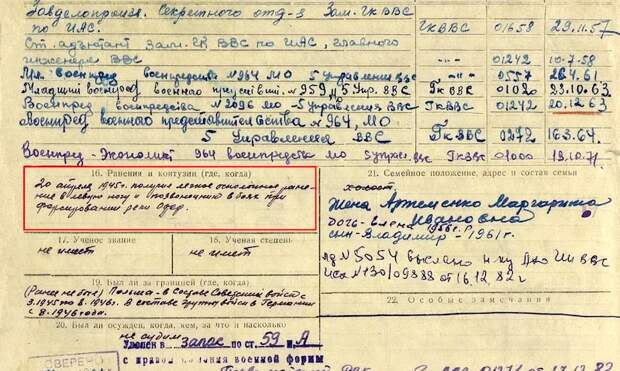 Завделопроизв. Секретного отд-я Зам. ГК ВВС
по ИАС.
ГК ВВС 01658 29.11.57
Ст. адъютант Зам. ГК ВВС по ИАС, главного
инженера ВВС
—"— 01242 10.7.58
Мл. военпред военпредства №964 МО - 5 управления ВВС —"— 0557 28.4.61
Младший военпред военного №959 5 Упр. ВВС Гк ВВС 01020 23.10.63
Военпред военпредства №2096 МО - 5 Управления ВВС ГКВВС 01242 20.12.63
Военпред военного представительства №964, МО
5 Управления ВВС ГкВВС 0272
Военпред - Экономист 964 военпредства МО 5 ГкВВС 01000
16. Ранения и контузии (где, когда)
20 апреля 1945г. получил легкое осколочное ране-
ние в левую ногу и позвоночник в бою при
форсировании реки Одер.
21. Семейное положение, адрес и состав семьи
холост
жена Артеменко Маргарита
Ивановна
дочь - Елена 1956г.
сын - Владимир - 1961г.
17. Ученое звание
не имеет
18. Ученая степень
не имеет
№5054 выслано
№130/09388 от 16.12.82г
19. Был ли за границей (где, когда)
Польша - в Составе Советских войск с
3.1945 по 8.1946г. В составе группы войск в Германии
с 8.1946 года.
22. Особые замечания
20. Был ли осужден, когда, кем, за что и насколько
не судим
Уволен в запас по ст. 59 п. А
с правом ношения военной формы
СВЕРЕНО